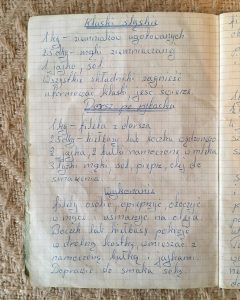 Kluski śląskie
1 kg - ziemniaków ugotowanych
25 dkg - mąki ziemniaczanej
1 jajko, sól
Wszystkie składniki zagnieść
uformować kluski, jeść świeże.
Dorsz po
1 kg - fileta z dorsza
25 dkg - kiełbasy lub boczku wędzonego
2 jajka, 2 bułki namoczone w mleku
3 łyżki mąki, sól, pieprz, olej do
smażenia.
Wykonanie
Filety osolić, opieprzyć obtoczyć
w mące i usmażyć na oleju.
Boczek lub kiełbasę pokroić
w drobną kostkę, wymieszać z
namoczoną bułką i jajkami.
Doprawić do smaku solą